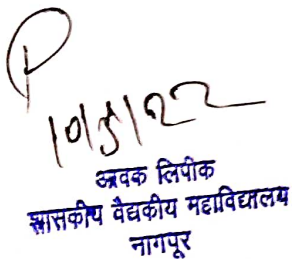 P
10/5/22
आवक लिपीक
शासकीय वैद्यकीय महाविद्यालय
नागपूर